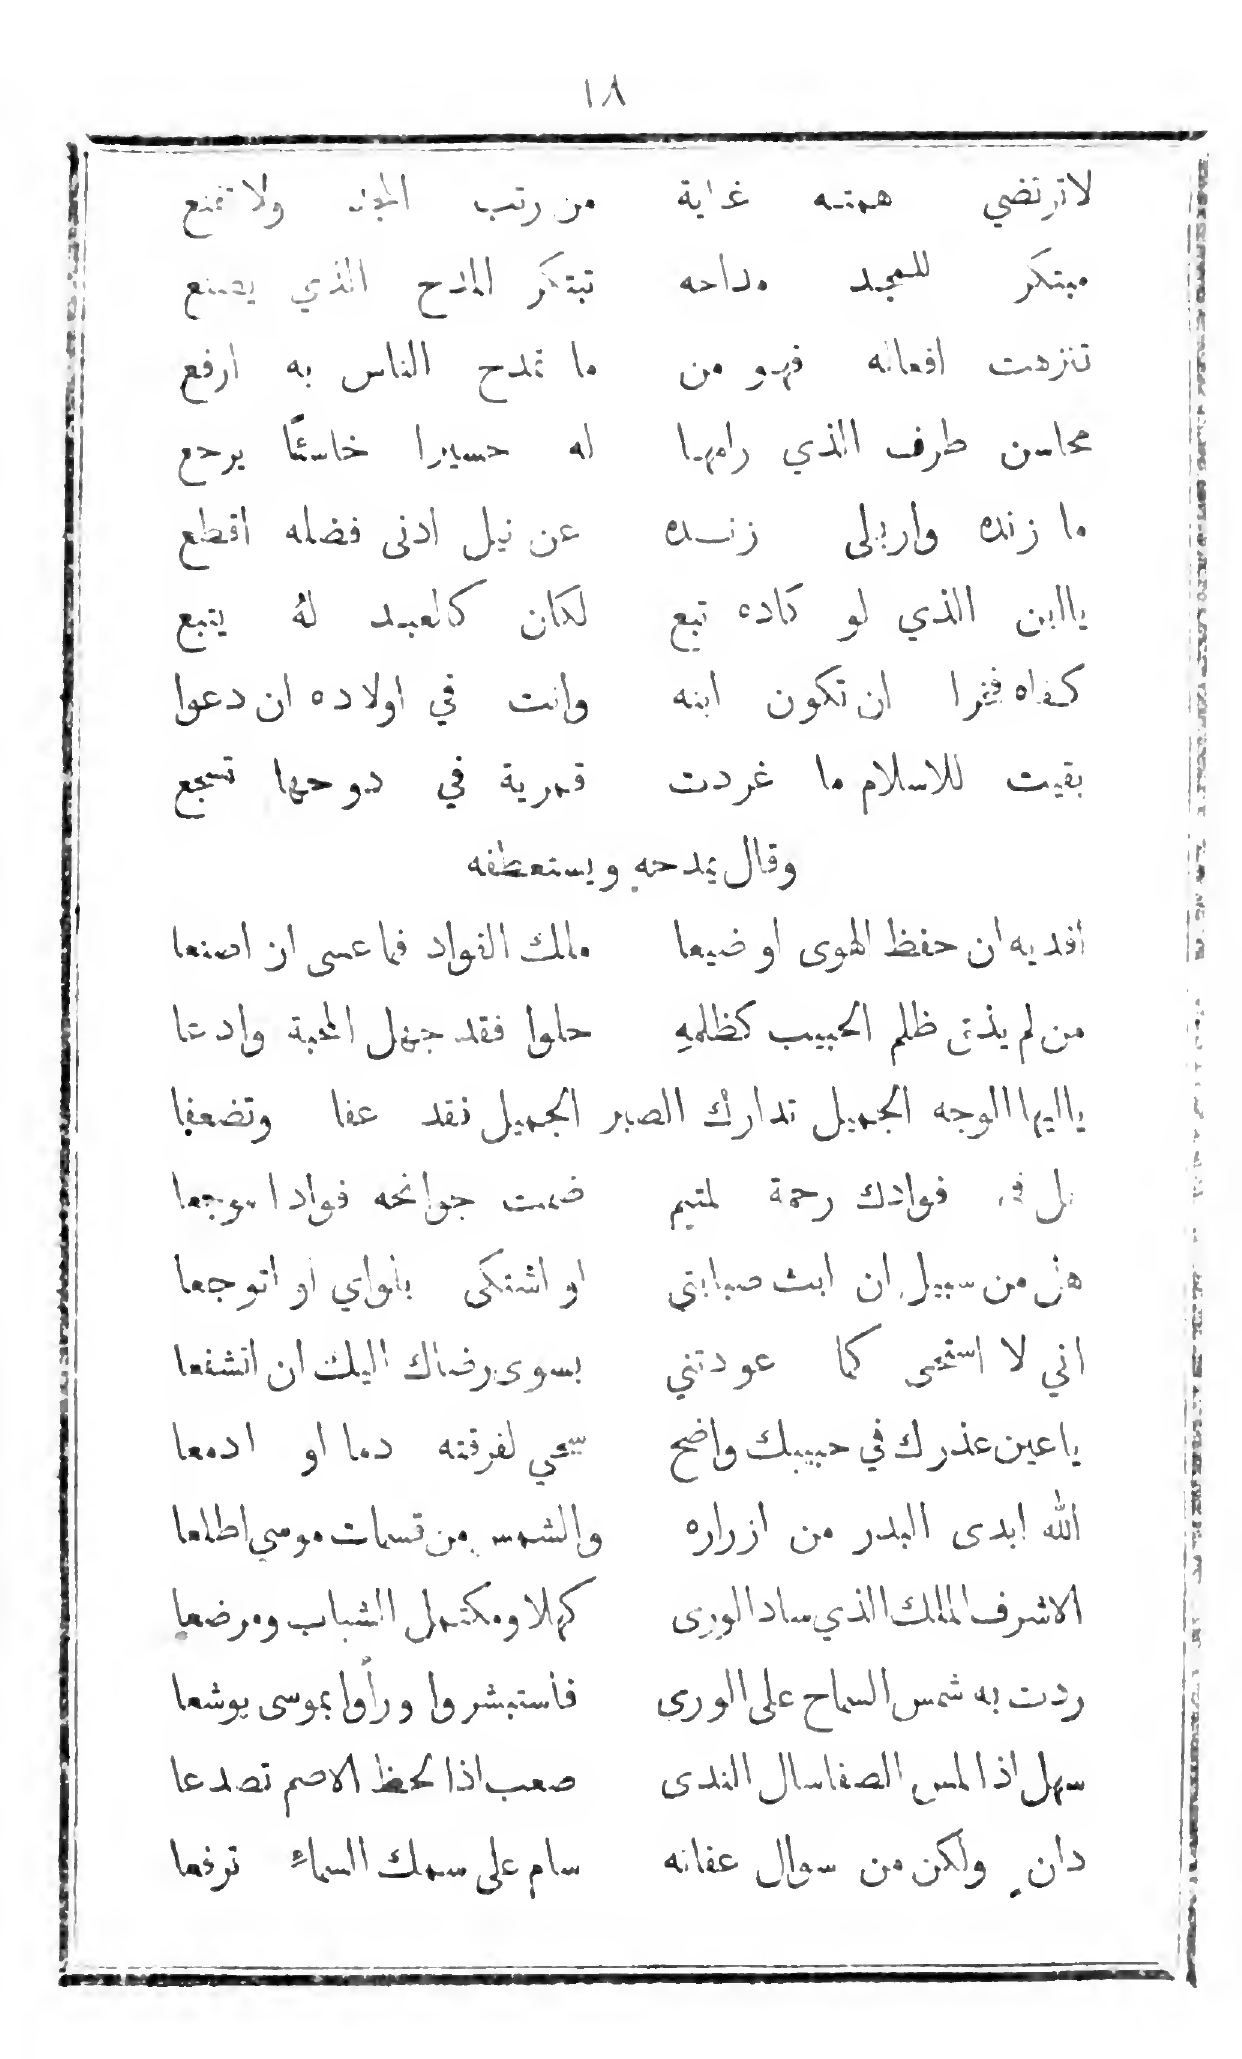 ١٨
لاترتضي همته غاية من رتب المجد ولا تقنع
مبتكر للمجد مداحه تبتكر المدح الذي يصنع
تنزهت افعاله فهو من ما تمدح الناس به ارفع
محاسن طرف الذي رامها له حسيرا خاسئًا يرجع
ما زنده وارٍ لى زنده عن نيل ادنى فضله اقطع
ياابن الذي لو كاده تبع لكان كالعبد لهُ يتبع
كفاه فخرا ان تكون ابنه وانت في اولاده ان دعوا
بقيت للاسلام ما غردت قمرية في دوحها تسجع
وقال يمدحه ويستعطفه
افديه ان حفظ الهوى او ضيعا ملك الفواد فما عسى ان اصنعا
من لم يذق ظلم الحبيب كظلمهِ حلوا فقد جهل المحبة وادعا
ياايها الوجه الجميل تدارك الصبر الجميل فقد عفا وتضعفا
فوادك رحمة لمتيم ضمت جوانحه فوادا موجعا
هل من سبيل ان ابث صبابتي او اشتكى بلواي او اتوجعا
اني لا استحيى كما عودتني بسوى رضاك اليك ان اتشفعا
ياعين عذرك في حبيبك واضح سحي لفرقته دما او ادمعا
الله ابدى البدر من ازراره والشمس من قسمات موسي اطلعا
الاشرف الملك الذي ساد الورى كهلا ومكتمل الشباب ومرضعا
ردت به شمس السماح على الورى فأستبشروا ورأوا بموسى يوشعا
سهل اذا لمس الصفاسال الندى صعب اذا لحظ الاصم تصدعا
دانٍ ولكن من سوال عفاته سام على سمك السماءِ ترفعا